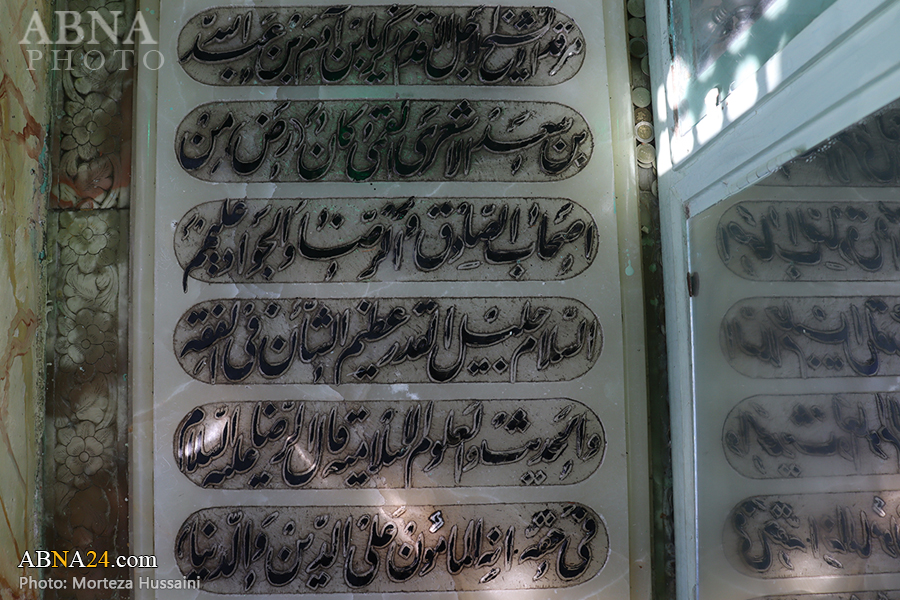 ABNA
PHOTO
مرقد الشیخ الاجل الاقدم زکریا بن آدم بن عبد الله
بن سعد الاشعری القمی کان (رض) من
اصحاب الصادق و الرضا و الجواد علیهم
السلام جلیل القدر عظیم الشأن فی الفقه
و الحدیث و العلوم الاسلامیه قال الرضا علیه السلام
فی حقه انه المامون علی الدین و الدنیا
ABNA24.com
Photo: Morteza Hussaini